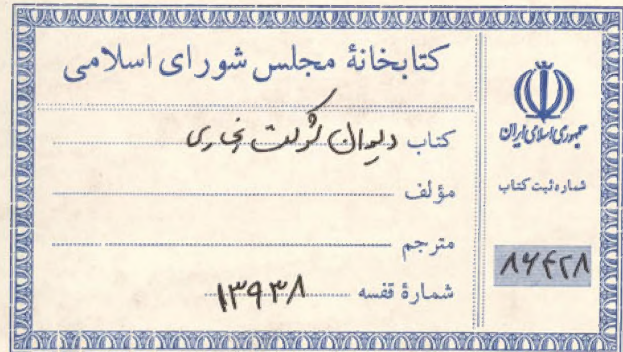 کتابخانهٔ مجلس شورای اسلامی
کتاب دیوان شوکت بخاری
مؤلف
مترجم
شمارهٔ قفسه ۱۳۹۳۸
جمهوری اسلامی ایران
شماره ثبت کتاب
۸۶۴۲۸